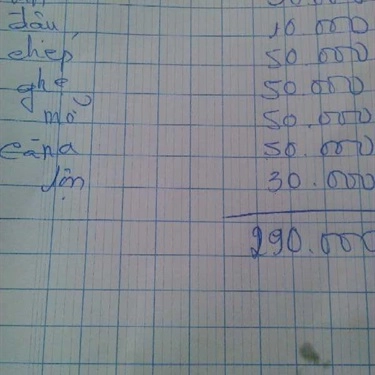 đầu 10.000
chiep 50.000
ghe 50.000
mổ 50.000
50.000
lợn 30.000
290.000